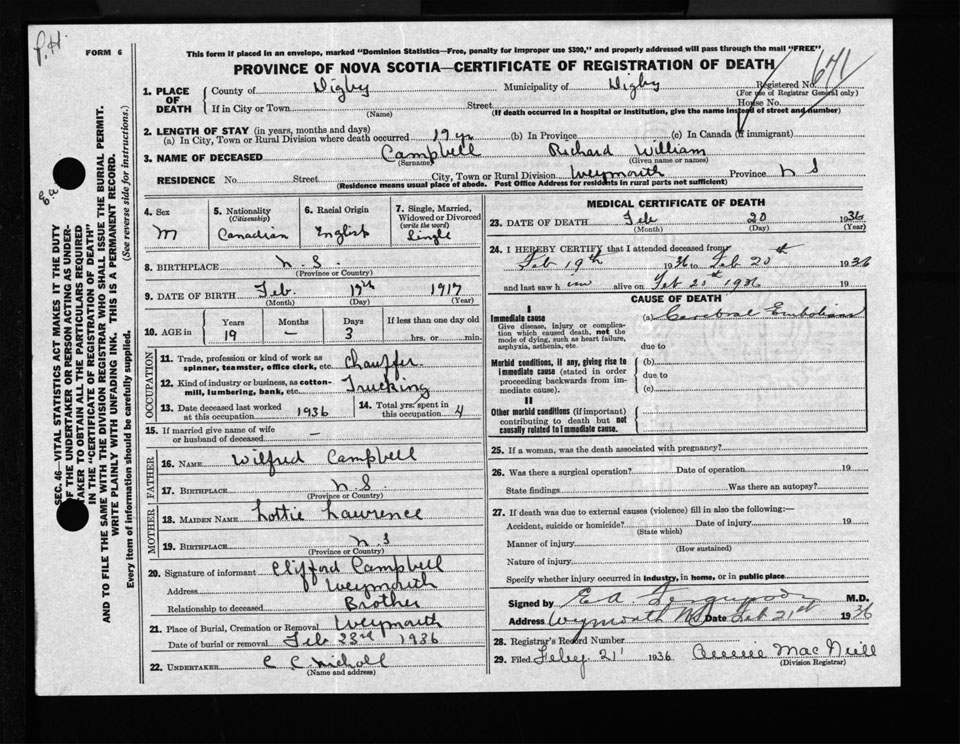 P.H.
FORM 6
This form if placed in an envelope, marked "Dominion Statistics—Free, penalty for improper use $300," and properly addressed will pass through the mail "FREE".
PROVINCE OF NOVA SCOTIA—CERTIFICATE OF REGISTRATION OF DEATH
671
1. PLACE OF DEATH
County of Digby Municipality of Digby Registered No.
(For use of Registrar General only)
If in City or Town Street House No.
(Name) (If death occurred in a hospital or institution, give the name instead of street and number)
2. LENGTH OF STAY (in years, months and days)
(a) In City, Town or Rural Division where death occurred 19 yr (b) In Province (c) In Canada (if immigrant)
3. NAME OF DECEASED Campbell Richard William
(Surname) (Given name or names)
RESIDENCE No. Street City, Town or Rural Division Weymouth Province N S
(Residence means usual place of abode. Post Office Address for residents in rural parts not sufficient)
4. Sex M
5. Nationality (Citizenship) Canadian
6. Racial Origin English
7. Single, Married, Widowed or Divorced (write the word) Single
8. BIRTHPLACE N.S.
(Province or Country)
9. DATE OF BIRTH Feb. 17th 1917
(Month) (Day) (Year)
10. AGE in Years Months Days If less than one day old
19 — 3 hrs. or min.
OCCUPATION
11. Trade, profession or kind of work as spinner, teamster, office clerk, etc. Chauffer
12. Kind of industry or business, as cotton-mill, lumbering, bank, etc. Trucking
13. Date deceased last worked at this occupation 1936
14. Total yrs. spent in this occupation 4
15. If married give name of wife or husband of deceased —
FATHER
16. NAME Wilfred Campbell
17. BIRTHPLACE N S
(Province or Country)
MOTHER
18. MAIDEN NAME Lottie Lawrence
19. BIRTHPLACE N.S
(Province or Country)
20. Signature of informant Clifford Campbell
Address Weymouth
Relationship to deceased Brother
21. Place of Burial, Cremation or Removal Weymouth
Date of burial or removal Feb 23rd 1936
22. UNDERTAKER C C Nicholl
(Name and address)
MEDICAL CERTIFICATE OF DEATH
23. DATE OF DEATH Feb 20 1936
(Month) (Day) (Year)
24. I HEREBY CERTIFY that I attended deceased from
Feb 19th 1936 to Feb 20th 1936
and last saw h im alive on Feb 20th 1936 19
CAUSE OF DEATH
I
Immediate cause
Give disease, injury or complication which caused death, not the mode of dying, such as heart failure, asphyxia, asthenia, etc.
(a) Cerebral Embolism
due to
Morbid conditions, if any, giving rise to immediate cause (stated in order proceeding backwards from immediate cause).
(b)
due to
(c)
II
Other morbid conditions (if important) contributing to death but not causally related to immediate cause.
25. If a woman, was the death associated with pregnancy?
26. Was there a surgical operation? Date of operation 19
State findings Was there an autopsy?
27. If death was due to external causes (violence) fill in also the following:—
Accident, suicide or homicide? Date of injury 19
(State which)
Manner of injury
(How sustained)
Nature of injury
Specify whether injury occurred in industry, in home, or in public place
Signed by E A Ferguson M.D.
Address Wymouth NS Date Feb 21st 1936
28. Registrar's Record Number
29. Filed Feby. 21 1936 Annie MacNeill
(Division Registrar)
SEC. 46—VITAL STATISTICS ACT MAKES IT THE DUTY
OF THE UNDERTAKER OR PERSON ACTING AS UNDER-
TAKER TO OBTAIN ALL THE PARTICULARS REQUIRED
IN THE "CERTIFICATE OF REGISTRATION OF DEATH"
AND TO FILE THE SAME WITH THE DIVISION REGISTRAR WHO SHALL ISSUE THE BURIAL PERMIT.
WRITE PLAINLY WITH UNFADING INK. THIS IS A PERMANENT RECORD.
Every item of information should be carefully supplied. (See reverse side for instructions.)